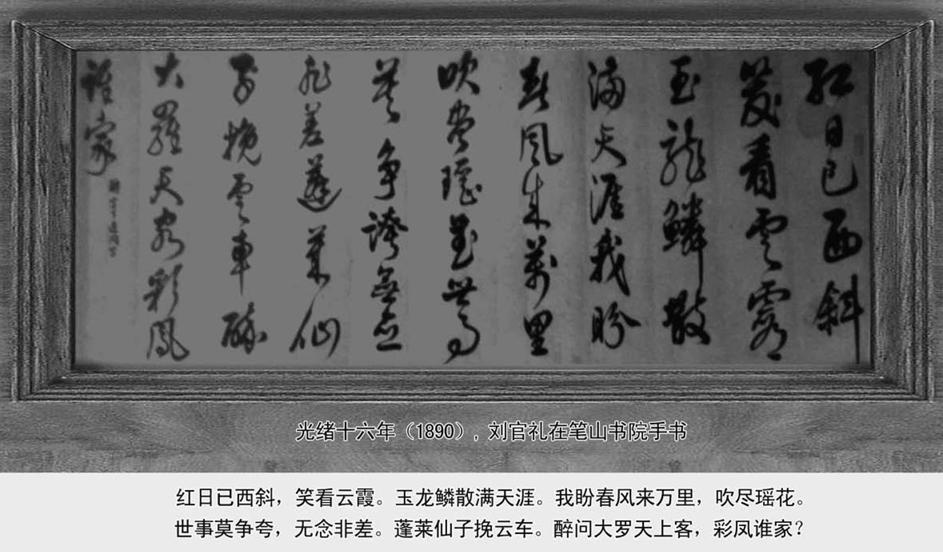 紅日已西斜
笑看雲霞
玉龍鱗散
滿天涯我盼
春風來萬里
吹盡瑤花世事
莫爭誇無念
非差蓬萊仙
子挽雲車醉
大羅天客彩鳳
誰家
光绪十六年（1890），刘官礼在笔山书院手书
红日已西斜，笑看云霞。玉龙鳞散满天涯。我盼春风来万里，吹尽瑶花。
世事莫争夸，无念非差。蓬莱仙子挽云车。醉问大罗天上客，彩凤谁家？